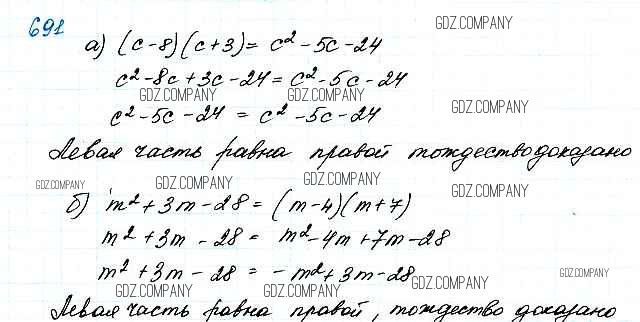 691
GDZ.COMPANY
а) (c-8)(c+3) = c² - 5c - 24
GDZ.COMPANY
c² - 8c + 3c - 24 = c² - 5c - 24
GDZ.COMPANY GDZ.COMPANY
c² - 5c - 24 = c² - 5c - 24
GDZ.COMPANY
Левая часть равна правой тождество доказано
GDZ.COMPANY GDZ.COMPANY GDZ.COMPANY GDZ.COMPANY
б) m² + 3m - 28 = (m-4)(m+7)
m² + 3m - 28 = m² - 4m + 7m - 28
m² + 3m - 28 = - m² + 3m - 28
GDZ.COMPANY GDZ.COMPANY GDZ.COMPANY GDZ.COMPANY
Левая часть равна правой, тождество доказано